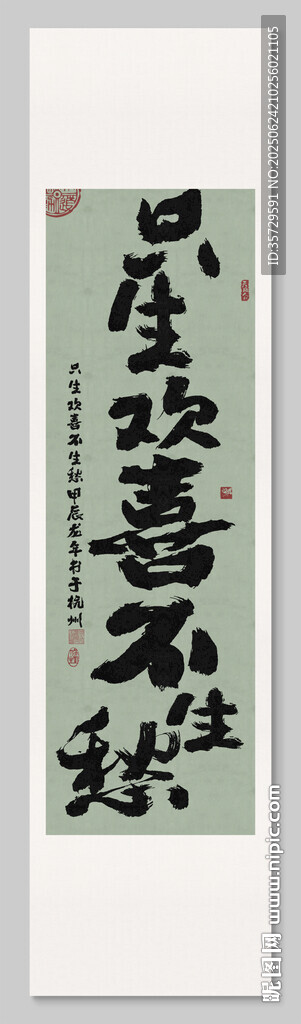 只生欢喜不生愁
只生欢喜不生愁甲辰龙年书于杭州
ID:35729591 NO:20250624210256021105
昵图网 www.nipic.com